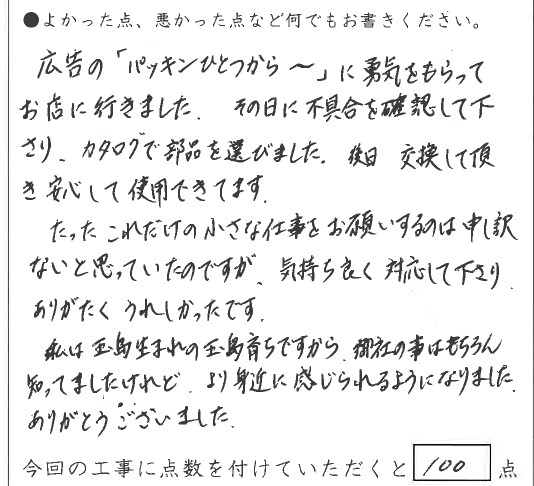 ●よかった点、悪かった点など何でもお書きください。
広告の「パッキンひとつから～」に勇気をもらって
お店に行きました。 その日に不具合を確認して下
さり、カタログで部品を選びました。後日 交換して頂
き安心して使用できてます。
たったこれだけの小さな仕事をお願いするのは申し訳
ないと思っていたのですが、気持ち良く対応して下さり
ありがたく うれしかったです。
私は玉島生まれの玉島育ちですから、御社の事はもちろん
知ってましたけれど、より身近に感じられるようになりました。
ありがとうございました。
今回の工事に点数を付けていただくと 100 点